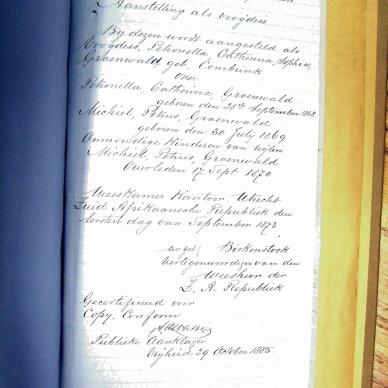 Aanstelling als voogdes
By dezen wordt aangesteld als
Voogdess, Petronella Catherina, Sophia,
Groenwald geb. Combrink
over
Petronella, Catherina, Groenwald
geboren den 28st September 1868
Michiel, Petrus, Groenwald
geboren den 30 July 1869
Onmondige Kinderen van wijlen
Michiel, Petrus, Groenwald
Overleden 17 Sept 1870
Weeskamer Kantoor Utrecht
Zuid Afrikaansche Republiek den
eersten dag van September 1873
was get/ Birkenstock
Vertegenwoordiger van den
Weesheer der
Z. A. Republiek
Gecertifieerd voor
Copy. Conform
Publieke Aanklager
Vrijheid 29 October 1885